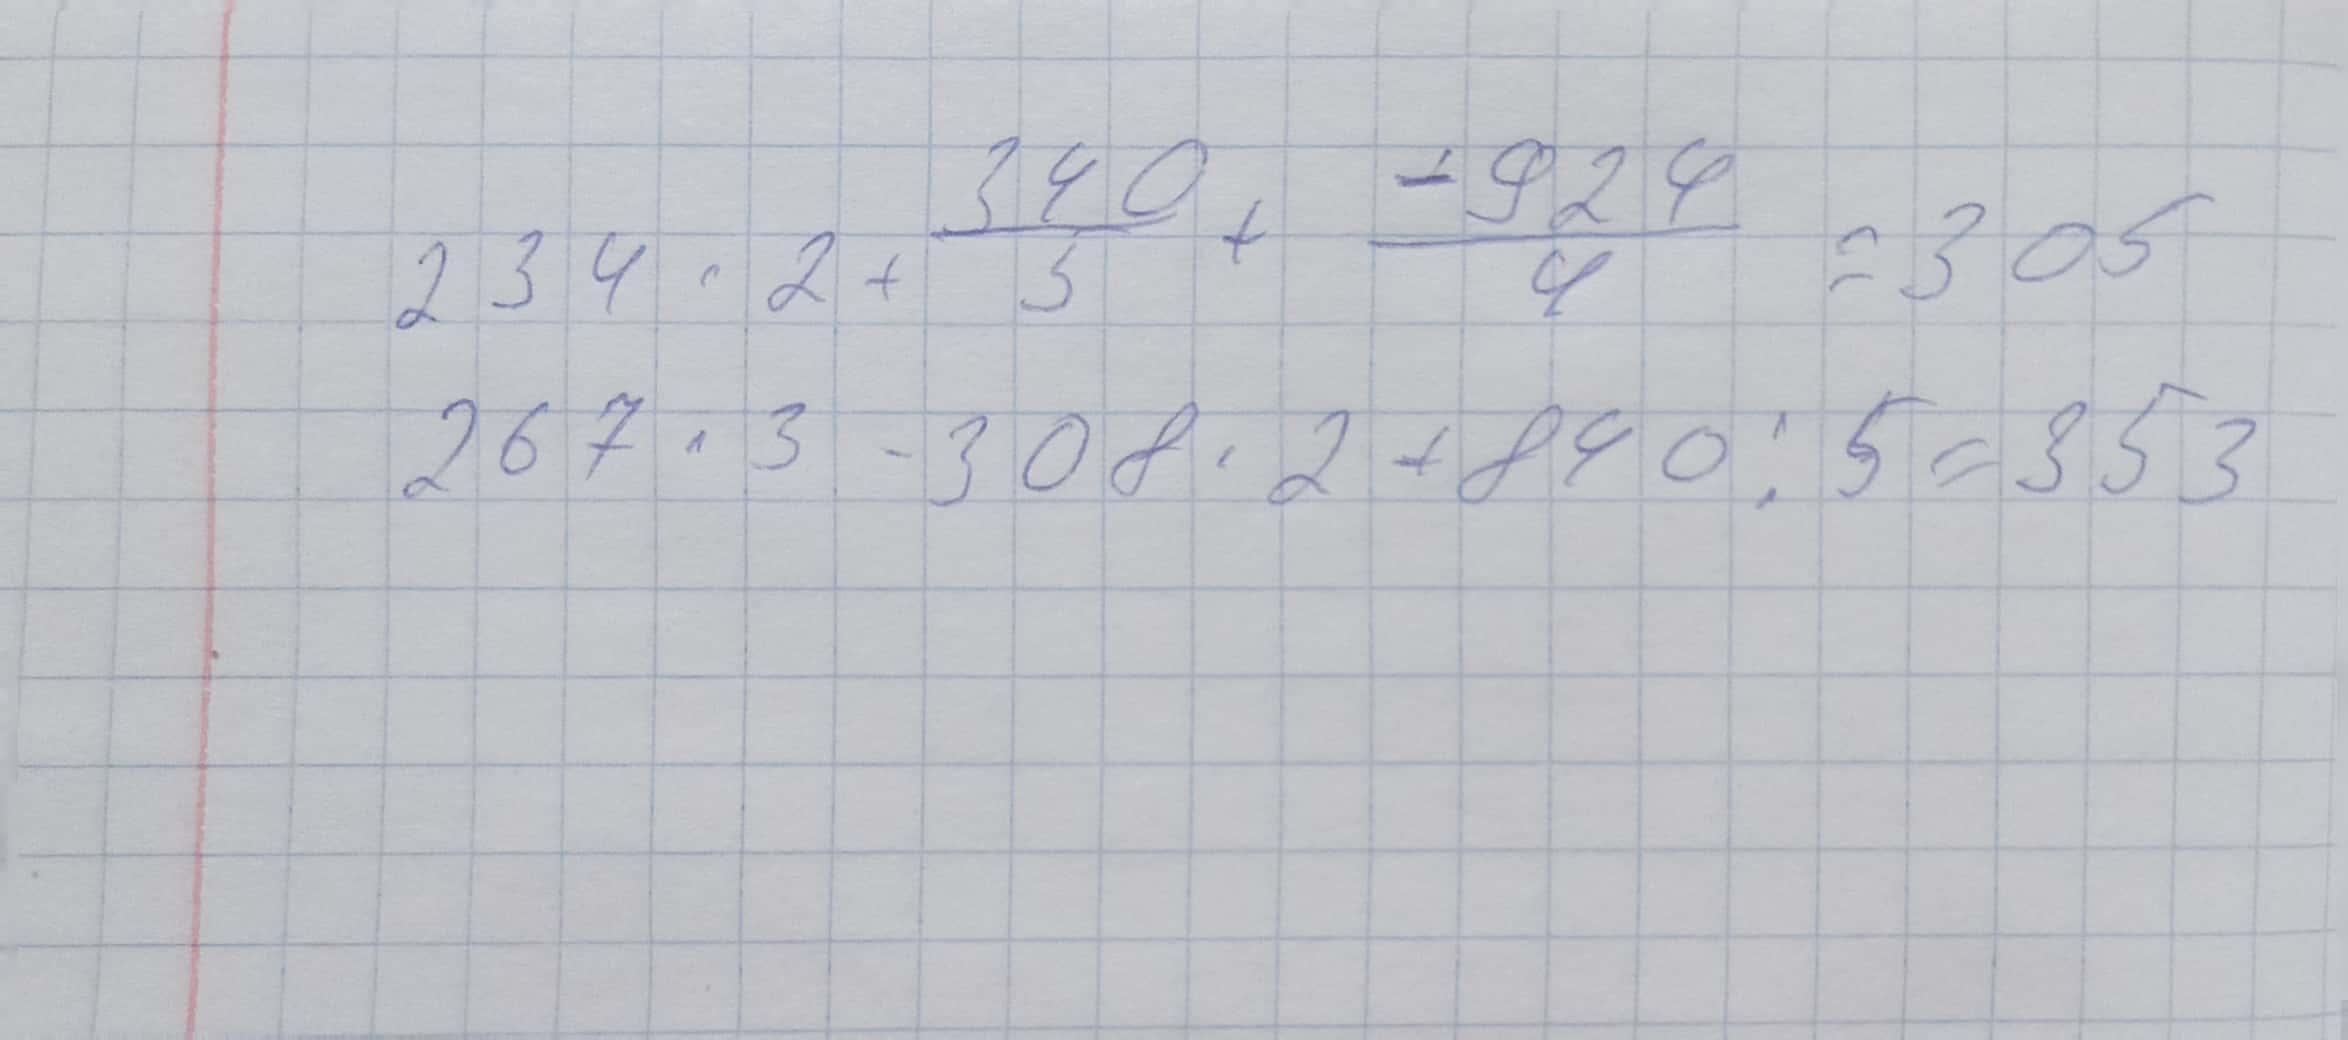 234 · 2 + 340/5 + -924/4 = 305
267 · 3 - 308 · 2 + 840 : 5 = 353